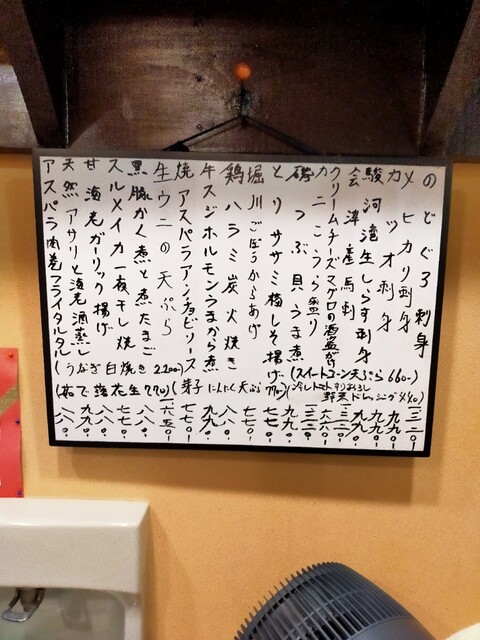 のどぐろ刺身 一三二〇
メヒカリ刺身 九九〇
カツオ刺身 九九〇
駿河湾生しらす刺身 九九〇
会津産馬刺 一三二〇
クリームチーズマグロの酒盗がけ
カニこうら盛り 六六〇
磯つぶ貝うま煮 八八〇
とりササミ梅しそ揚げ 七七〇
堀川ごぼうからあげ 七七〇
鶏ハラミ炭火焼き 八八〇
牛スジホルモンうまから煮 九九〇
焼アスパラアンチョビソース 七七〇
生ウニの天ぷら 一六五〇
黒豚かく煮と煮たまご 八八〇
スルメイカ一夜干し焼 九九〇
甘海老ガーリック揚げ 九九〇
天然アサリと海老酒蒸し 八八〇
アスパラ肉巻フライタルタル 八八〇
(うなぎ白焼き 2200)
(スイートコーン天ぷら 660)
(茹で落花生 770)
(芽子にんにく天ぷら 770)
(冷しトマトすりおろし
野菜ドレッシング 440)